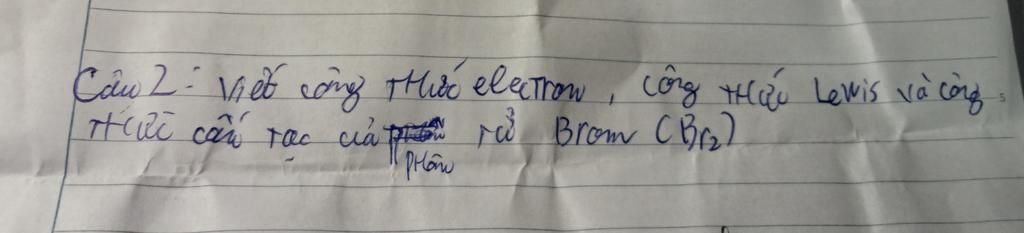 Câu 2: Viết công thức electron, công thức Lewis và công
thức cấu tạc của tử Brom (Br2)
phân